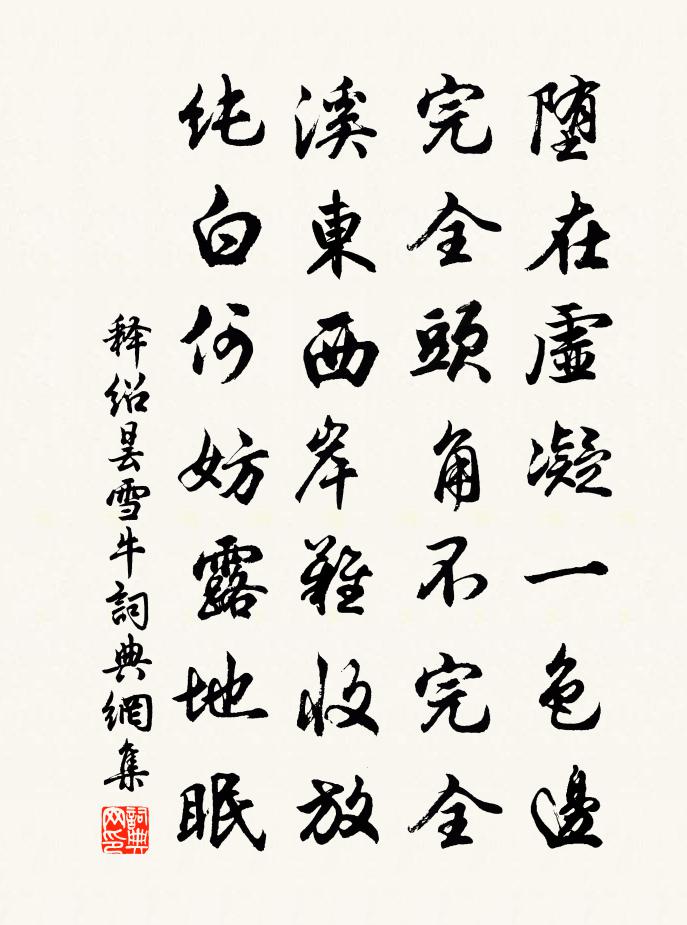 堕在虛凝一色邊
完全頭角不完全
溪東西岸難收放
纯白何妨露地眠
释紹曇雪牛詞典網集
詞典网印